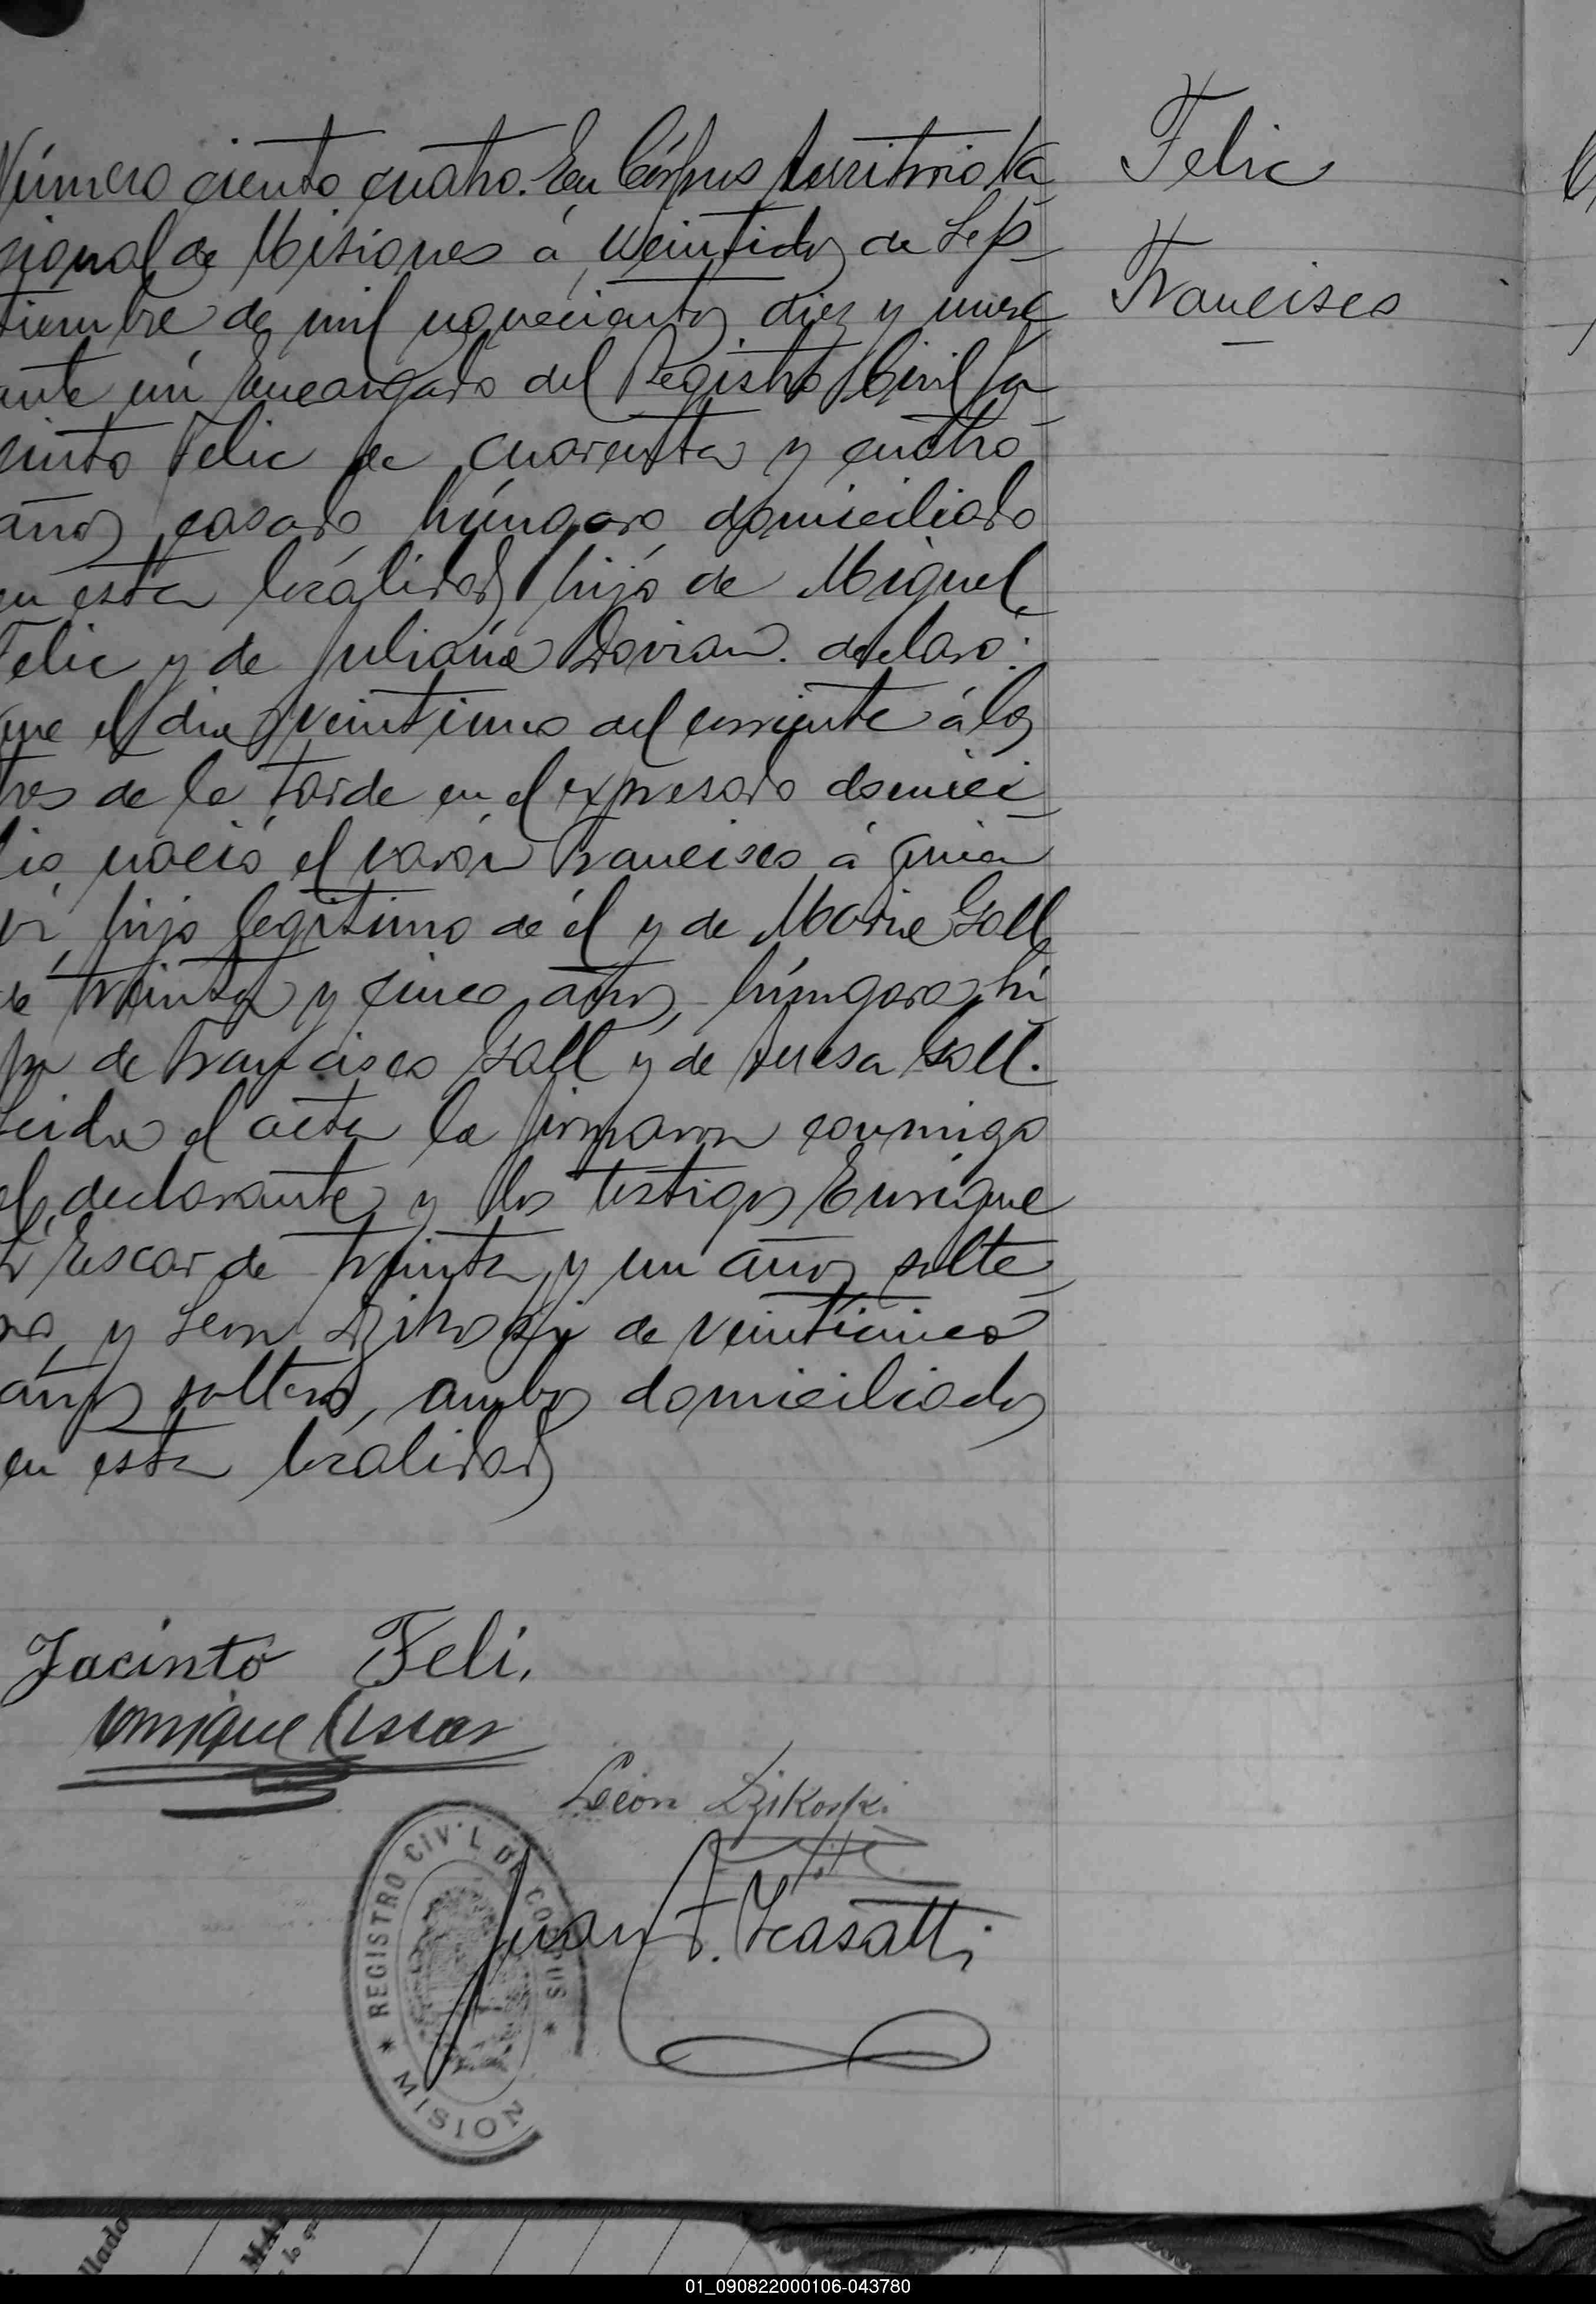 Número ciento cuatro. En Córpus territorio Na
cional de Misiones á veintidos de Sep
tiembre de mil novecientos diez y nueve
ante mí Encargado del Registro Civil Ja
cinto Felic de cuarenta y cuatro
años casado húngaro domiciliado
en esta localidad hijo de Miguel
Felic y de Juliana declaró:
que el dia veintiuno del corriente á las
tres de la tarde en el expresado domici
lio nació el varón Francisco á quien
ví, hijo legítimo de él y de Maria Goll
de treinta y cinco años, húngara, hi
ja de Francisco Goll y de Teresa Goll.
Leida el acta la firmaron conmigo
el declarante y los testigos Enrique
Escar de treinta y un años solte
ro, y Leon Dzikoski de veinticinco
años soltero, ambos domiciliados
en esta localidad
Felic
Francisco
Jacinto Feli.
Enrique Escar
Leion Dzikoski.
Juan F. Icasatti
REGISTRO CIVIL DE CORPUS
* MISION *
llado
01_090822000106-043780